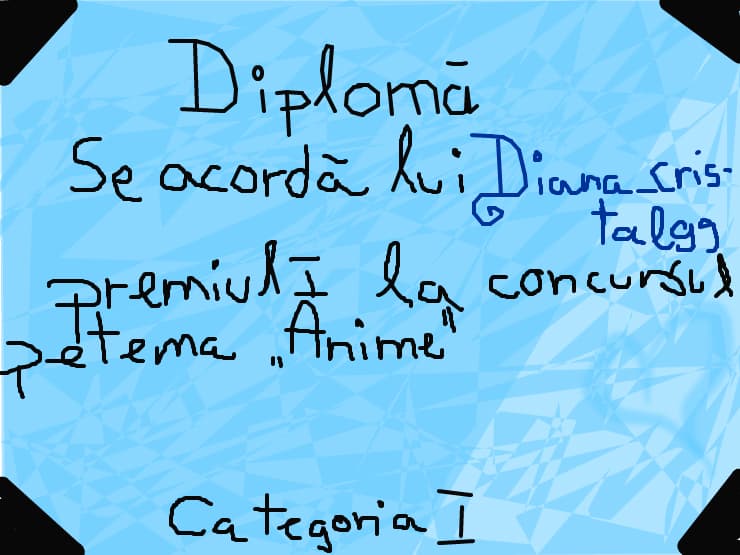 Diplomă
Se acordă lui Diana_cris-
talgg
premiul I la concursul
pe tema „Anime"
Categoria I